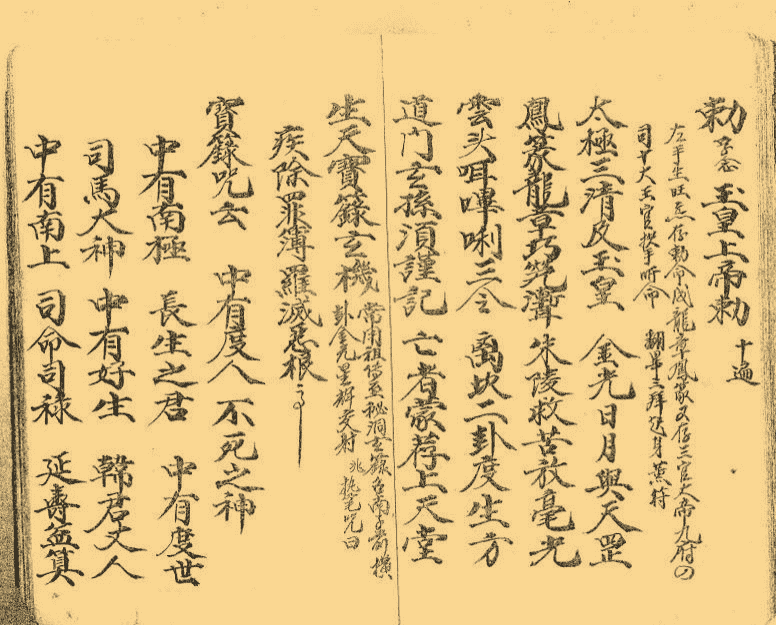 勅 玉皇上帝勅 十遍
左手生旺 存勅命成龍章鳳篆又存三官大帝九府
司 大王官 手听命 三拜 身 符
太極三清及玉皇 金光日月與天罡
鳳篆龍章巧 朱陵救苦放毫光
雲头 唎三仝 离坎二卦度生方
道门玄孫須謹記 亡者蒙荐上天堂
生天寶籙玄機 常用祖 秘洞玄籙 南 橫
卦金光星 交射 兆 咒曰
疾除罪簿羅滅惡根
寶籙咒云 中有度人 不死之神
中有南極 長生之君 中有度世
司馬大神 中有好生 韓君丈人
中有南上 司命司祿 延壽益算